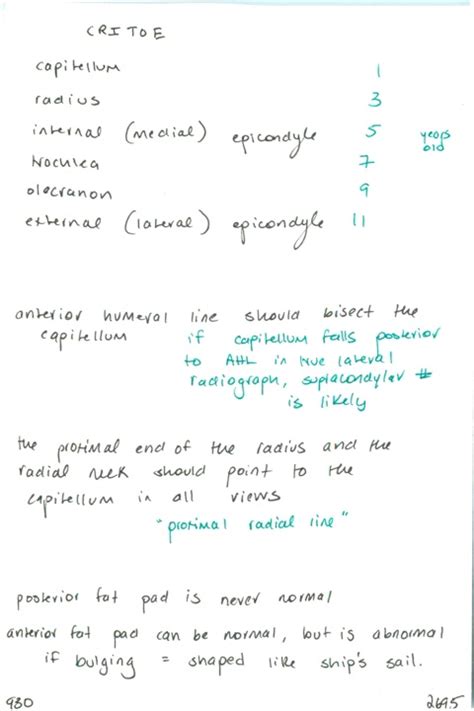 CRITOE
capitellum 1
radius 3
internal (medial) epicondyle 5 years old
trochlea 7
olecranon 9
external (lateral) epicondyle 11
anterior humeral line should bisect the
capitellum if capitellum falls posterior
to AHL in true lateral
radiograph, supracondylar #
is likely
the proximal end of the radius and the
radial neck should point to the
capitellum in all views
"proximal radial line"
posterior fat pad is never normal
anterior fat pad can be normal, but is abnormal
if bulging = shaped like ship's sail.
930 2695